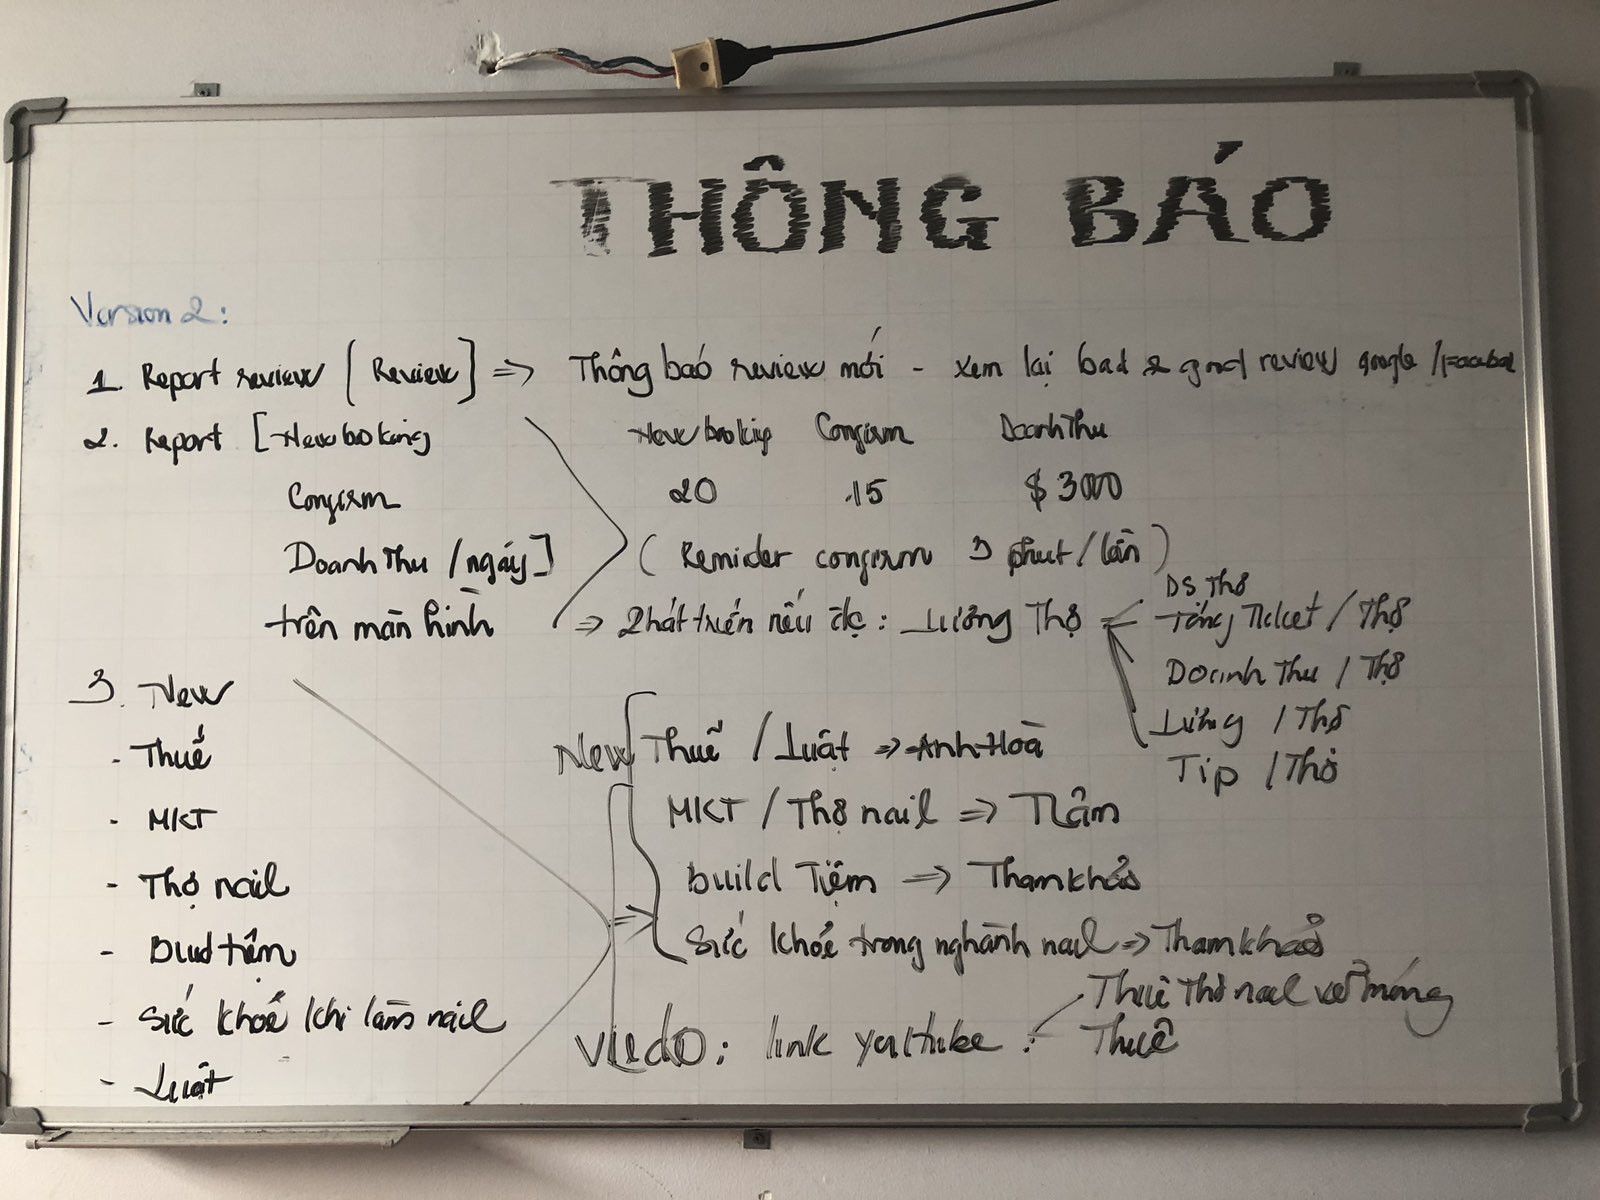 THÔNG BÁO
Version 2:
1. Report review [Review] => Thông báo review mới - xem lại bad & good review google /Facebook
2. Report [New booking
New booking Confirm Doanh Thu
Confirm
20 15 $ 3000
Doanh Thu /ngày]
(Remider confirm 3 phút/lần)
trên màn hình
=> Phát triển nếu đc: Lương Thợ
DS Thợ
Tổng Ticket / Thợ
Doanh Thu / Thợ
Lương / Thợ
Tip / Thợ
3. New
- Thuế
- MKT
- Thợ nail
- Buid tiệm
- Sức khoẻ khi làm nail
- Luật
New Thuế / Luật => Anh Hoà
MKT / Thợ nail => Tâm
Build Tiệm => Tham khảo
Sức khoẻ trong nghành nail => Tham khảo
Viedo: link youtube :
Thuê Thợ nail vẽ móng
Thuế